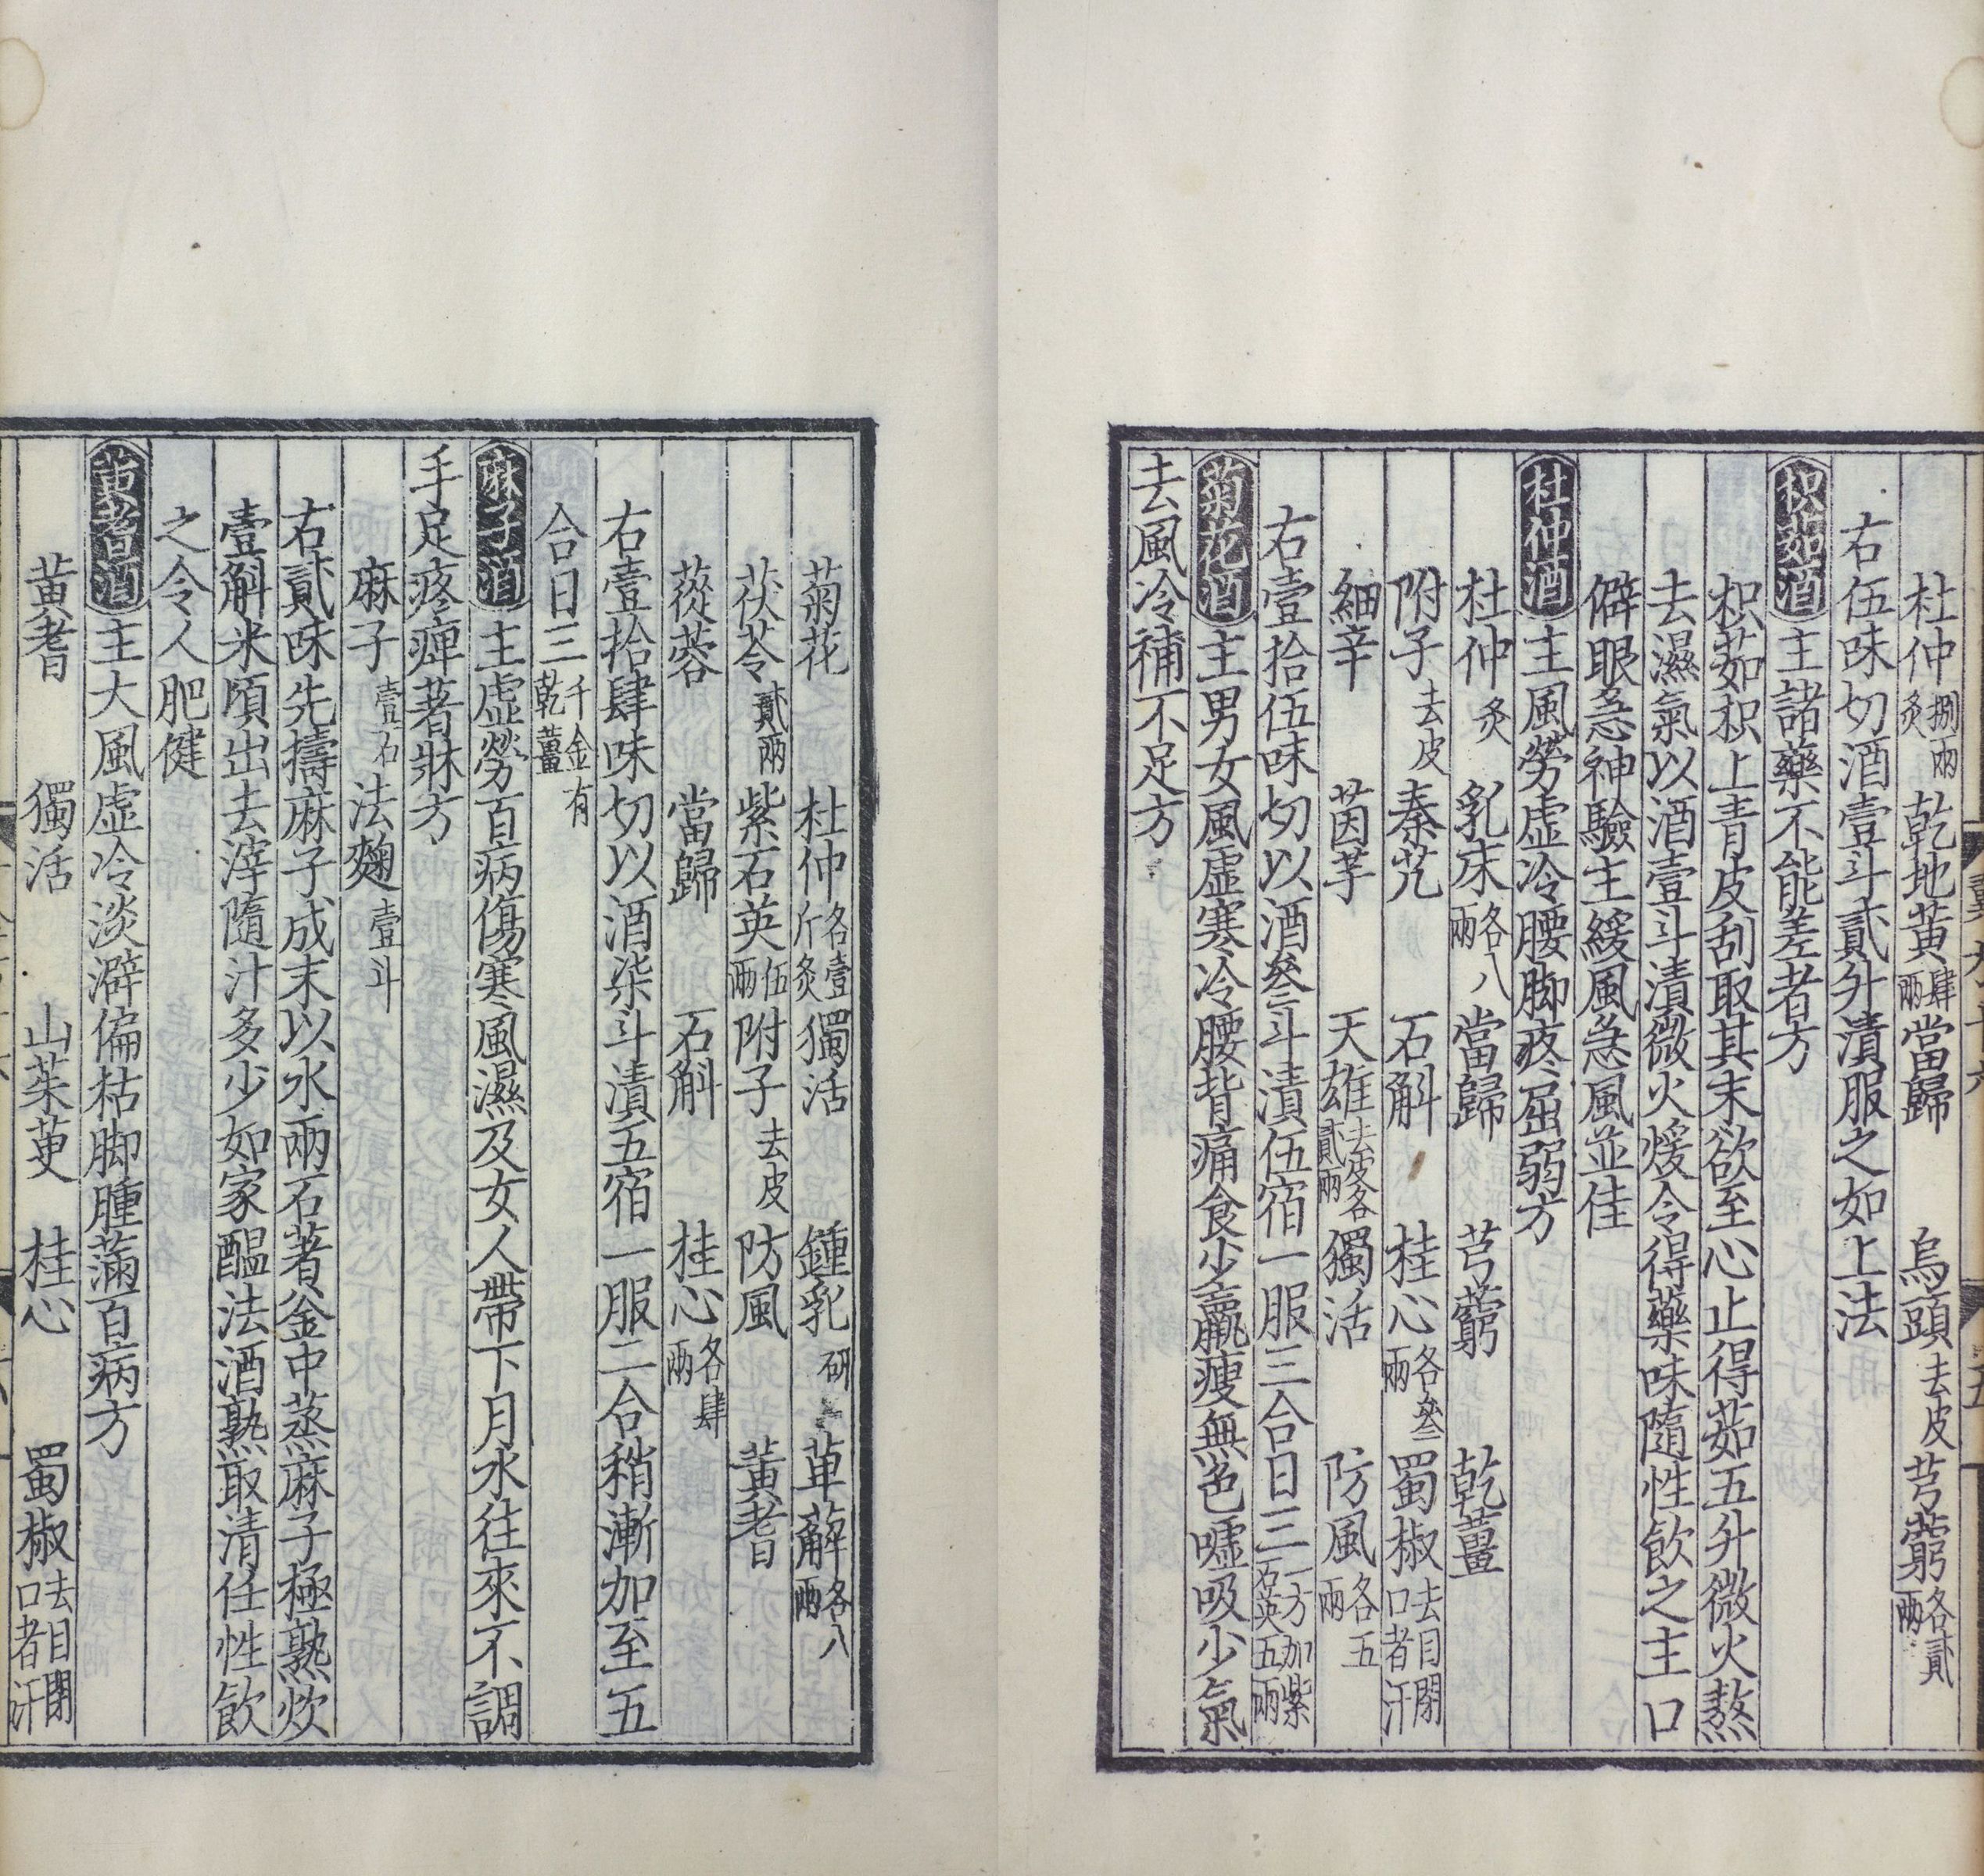 杜仲捌兩炙 乾地黃肆兩 當歸 烏頭去皮 芎藭各貳兩
右伍味切酒壹斗貳升漬服之如上法
枳茹酒主諸藥不能差者方
枳茹枳上青皮刮取其末欲至心止得茹五升微火熬
去濕氣以酒壹斗漬微火煖令得藥味隨性飲之主口
僻眼急神驗主緩風急風並佳
杜仲酒主風勞虛冷腰脚疼屈弱方
杜仲炙 乳床各八兩 當歸 芎藭 乾薑
附子去皮 秦艽 石斛 桂心各叁兩 蜀椒去目閉口者汗
細辛 茵芋 天雄去皮各貳兩 獨活 防風各五兩
右壹拾伍味切以酒叁斗漬伍宿一服三合日三一方加紫石英五兩
菊花酒主男女風虛寒冷腰背痛食少羸瘦無色噓吸少氣
去風冷補不足方
菊花 杜仲各壹斤炙 獨活 鍾乳研 萆薢各八兩
茯苓貳兩 紫石英伍兩 附子去皮 防風 黃耆
蓯蓉 當歸 石斛 桂心各肆兩
右壹拾肆味切以酒柒斗漬五宿一服二合稍漸加至五
合日三千金有乾薑
麻子酒主虛勞百病傷寒風濕及女人帶下月水往來不調
手足疼痺著牀方
麻子壹石 法麴壹斗
右貳味先擣麻子成末以水兩石著釜中蒸麻子極熟炊
壹斛米頃出去滓隨汁多少如家醞法酒熟取清任性飲
之令人肥健
黃耆酒主大風虛冷淡澼偏枯脚腫滿百病方
黃耆 獨活 山茱萸 桂心 蜀椒去目閉口者汗